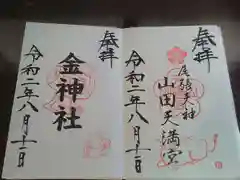 奉拝
尾張天神
山田天満宮
令和二年八月十一日
奉拝
金神社
令和二年八月十一日